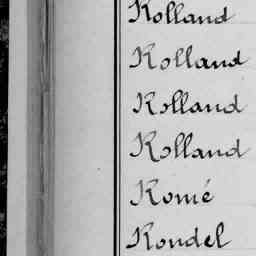 Rolland
Rolland
Rolland
Rolland
Romé
Rondel